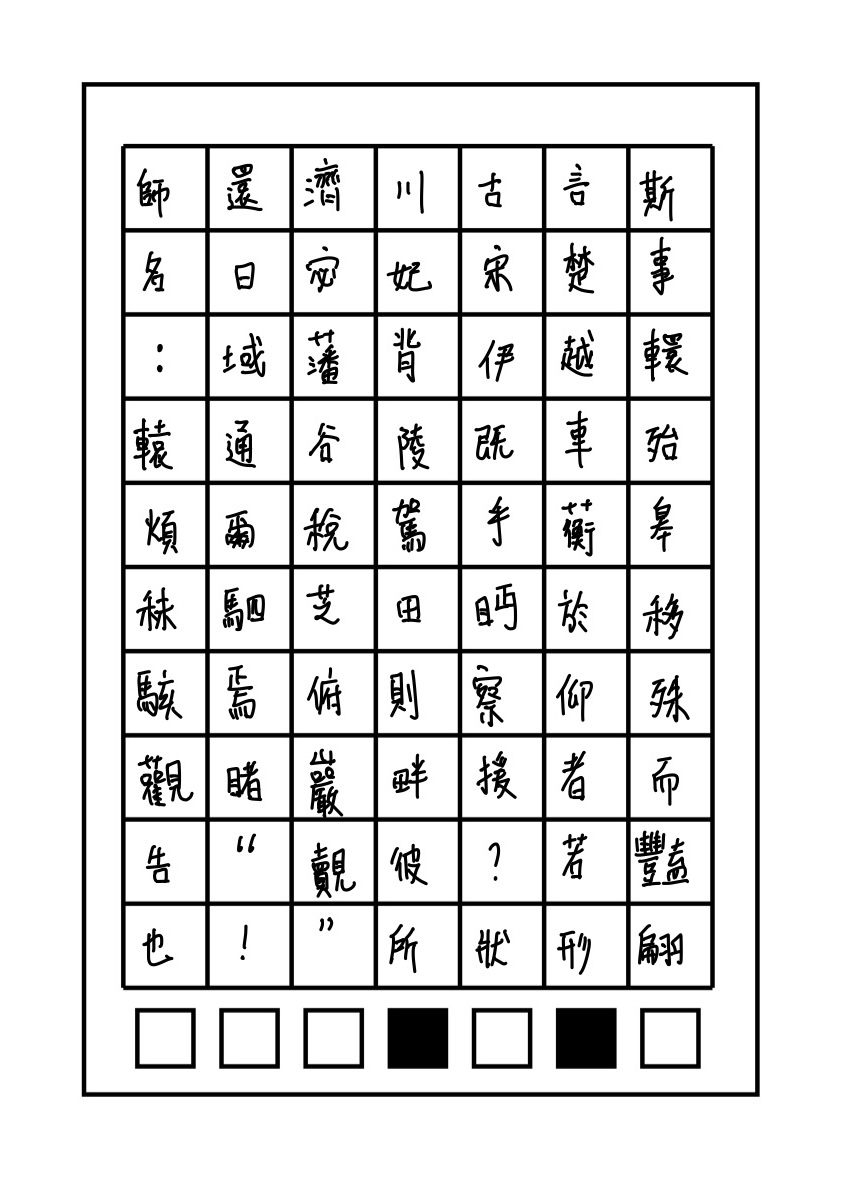 師還濟川古言斯
名日宓妃宋楚事
：域藩背伊越轘
轅通谷陵既車殆
煩爾稅駕手蘅皋
秣駟芝田眄於移
駭焉俯則察仰殊
觀睹巖畔援者而
告“覿彼？若豔
也！”所狀形翩